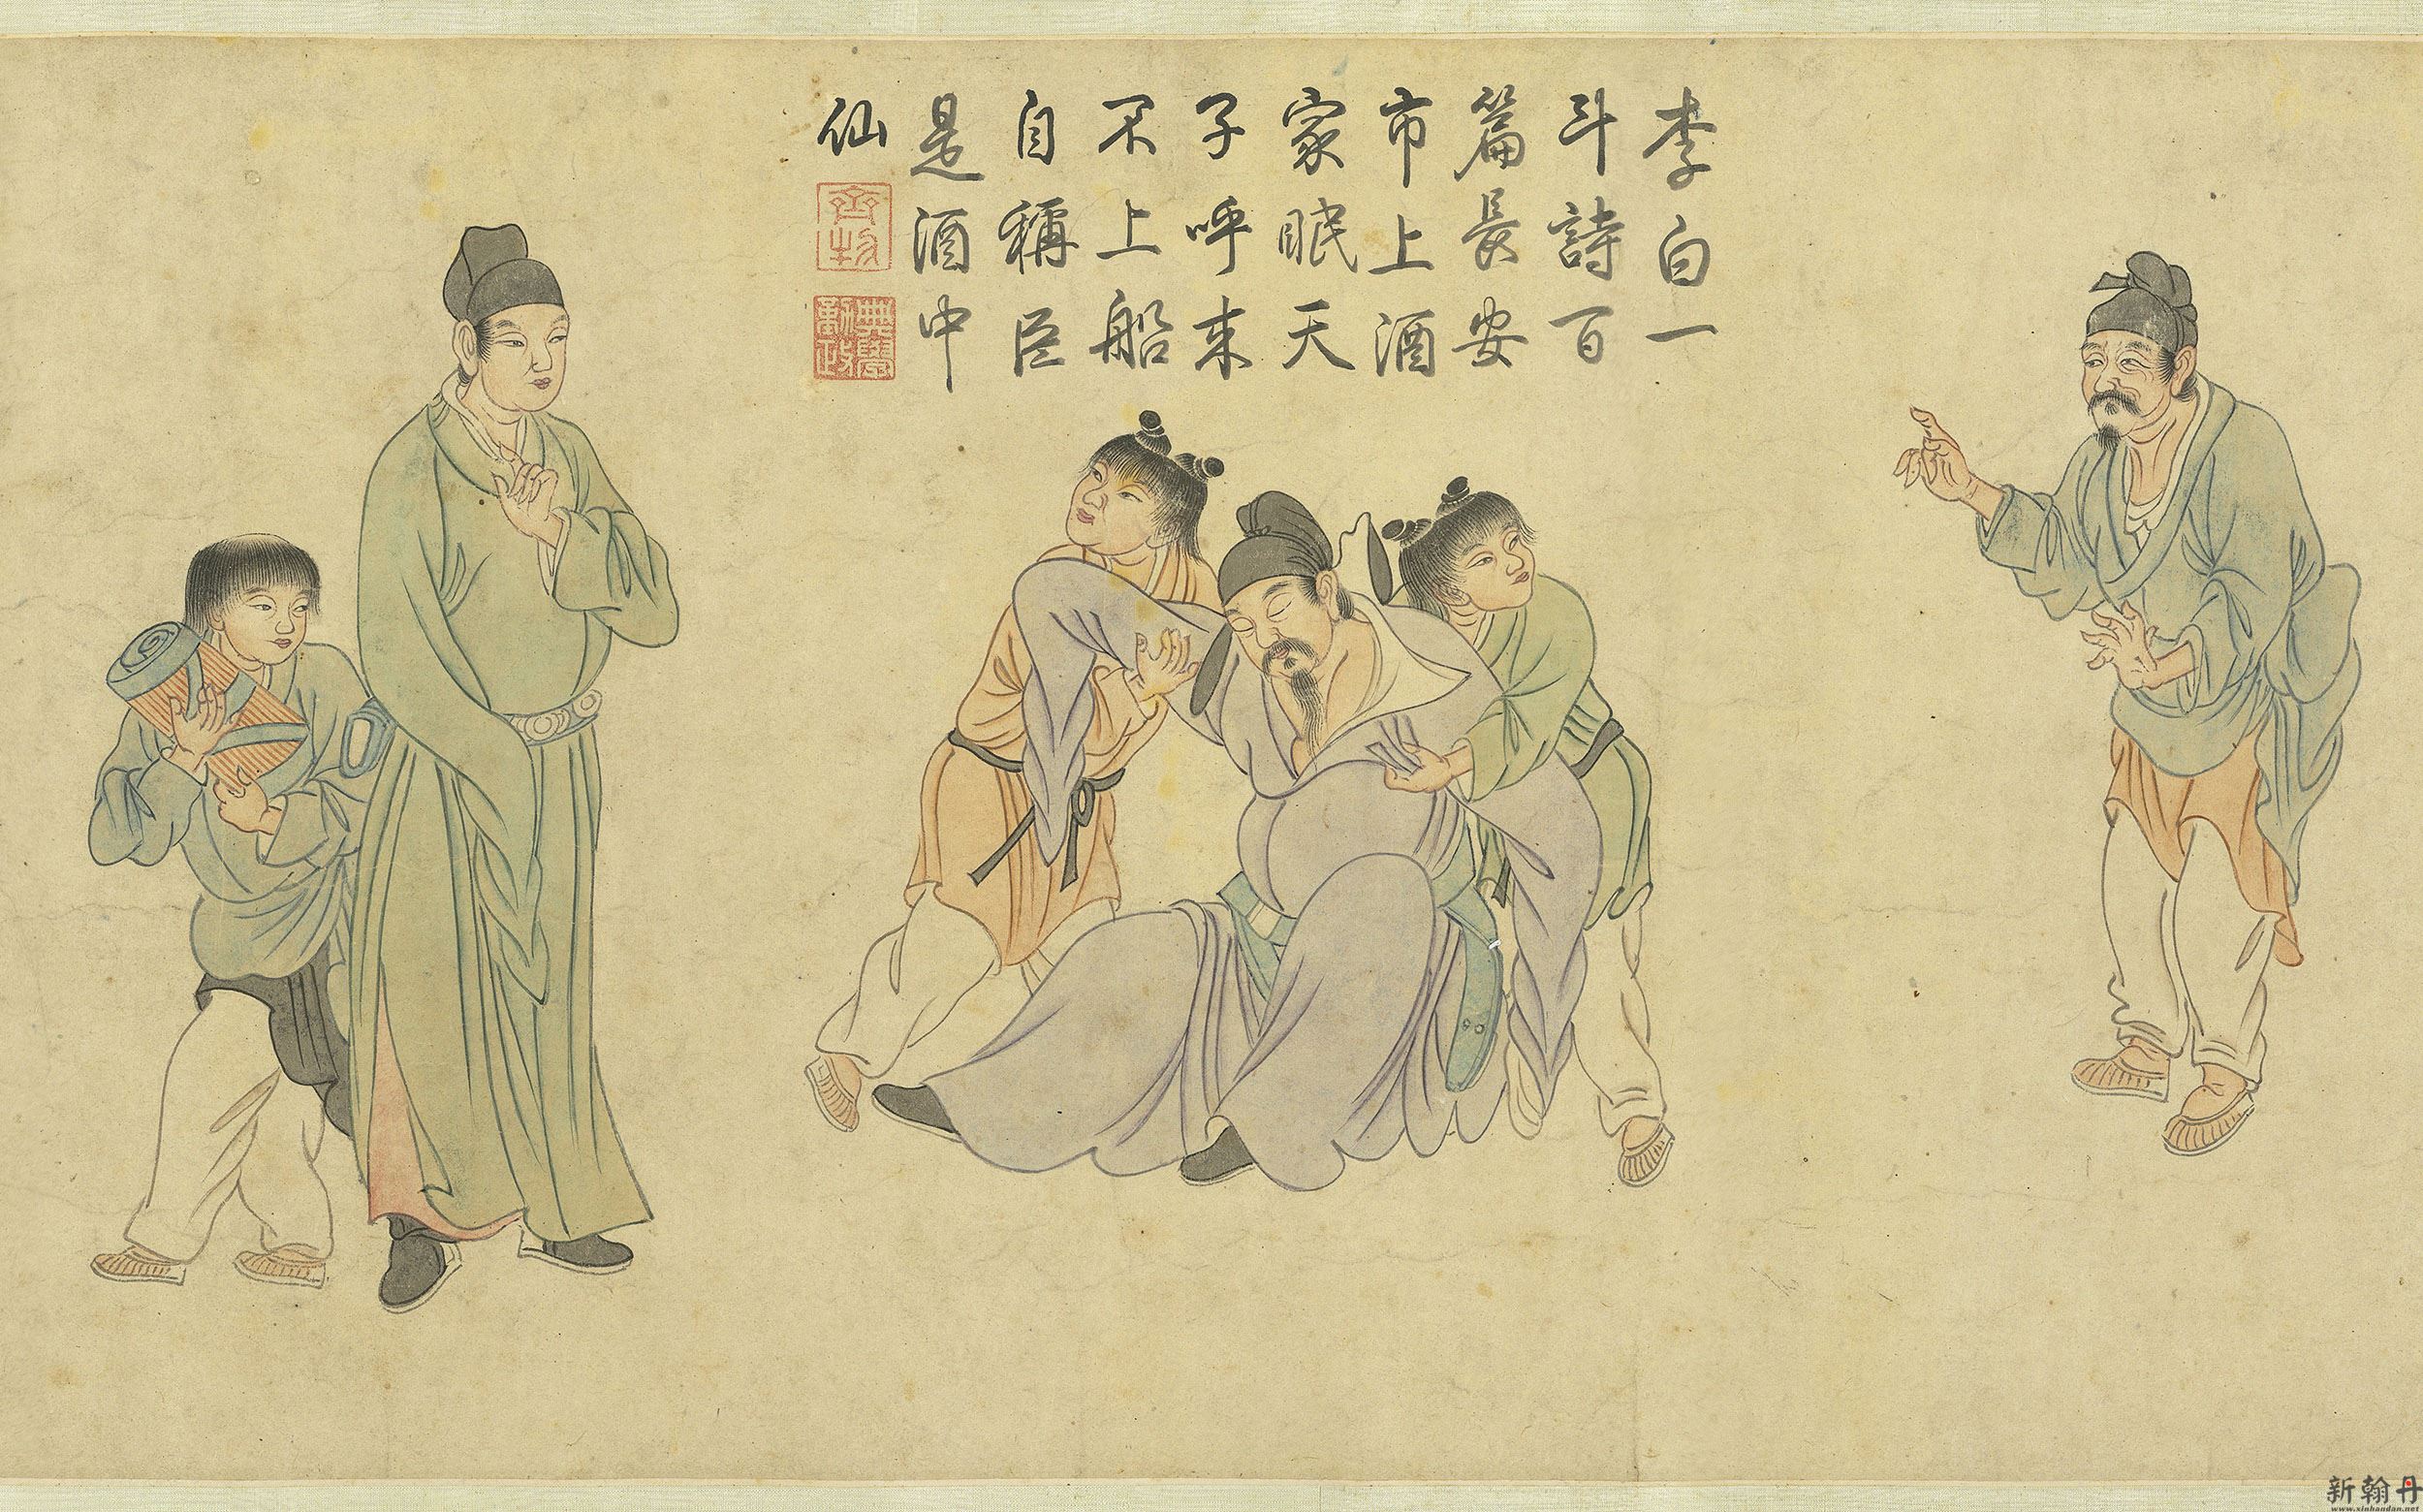 李白一
斗詩百
篇長安
市上酒
家眠天
子呼来
不上船
自稱臣
是酒中
仙
齊物
典學勤政
新翰丹
www.xinhandan.net